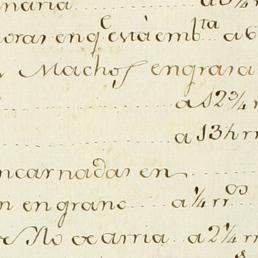 naria a 3½ r
oras en q.^e está emb^ta a 6
Machos en grasa
a 12¾ r
a 13½ rr
ncarnadas en
n en grano a ¼ rr^os
No ocarria a 2¼ r